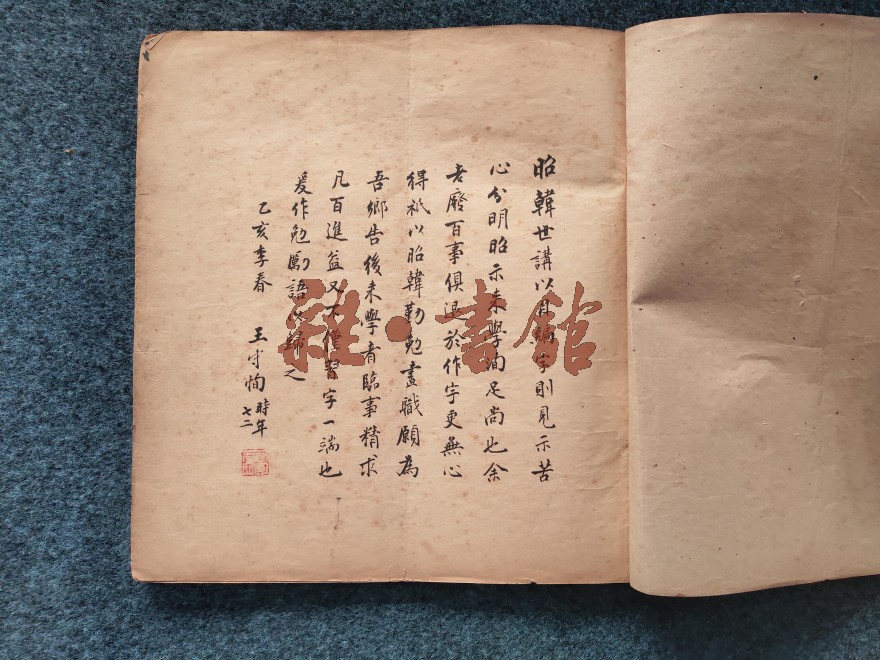 昭韓世講以自編字則見示苦
心分明昭示来學洵足尚也余
老廢百事俱退於作字更無心
得祇以昭韓勤勉盡職願為
吾鄉告後来學者臨事精求
凡百進益又不僅習字一端也
爰作勉勵語以歸之
乙亥季春 王守恂 時年七十二
雜·書館